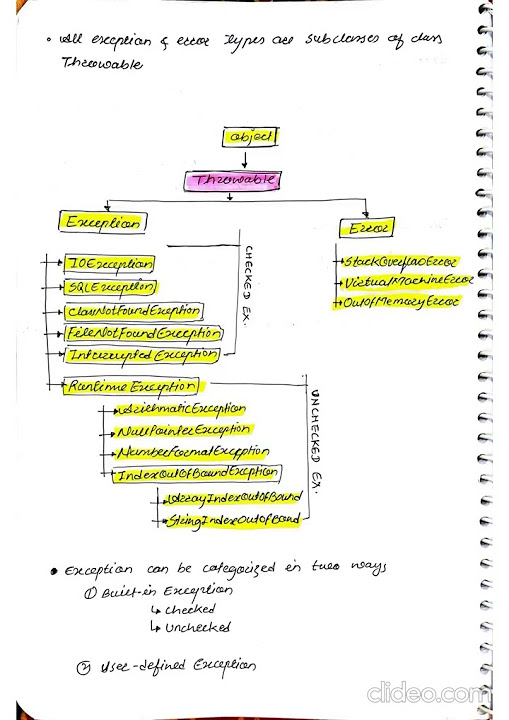 • All exception & error types are subclasses of class
Throwable
Object
Throwable
Exception
Error
CHECKED EX.
IOException
SQLException
ClassNotFoundException
FileNotFoundException
Interrupted Exception
StackOverflaoError
VirtualMachineError
OutOfMemoryError
RuntimeException
UNCHECKED EX.
ArithmaticException
NullPointerException
NumberFormatException
IndexOutOfBoundException
ArrayIndexOutOfBound
StringIndexOutOfBound
• Exception can be categorized in two ways
① Built-in Exception
↳ checked
↳ unchecked
② User-defined Exception
clideo.com